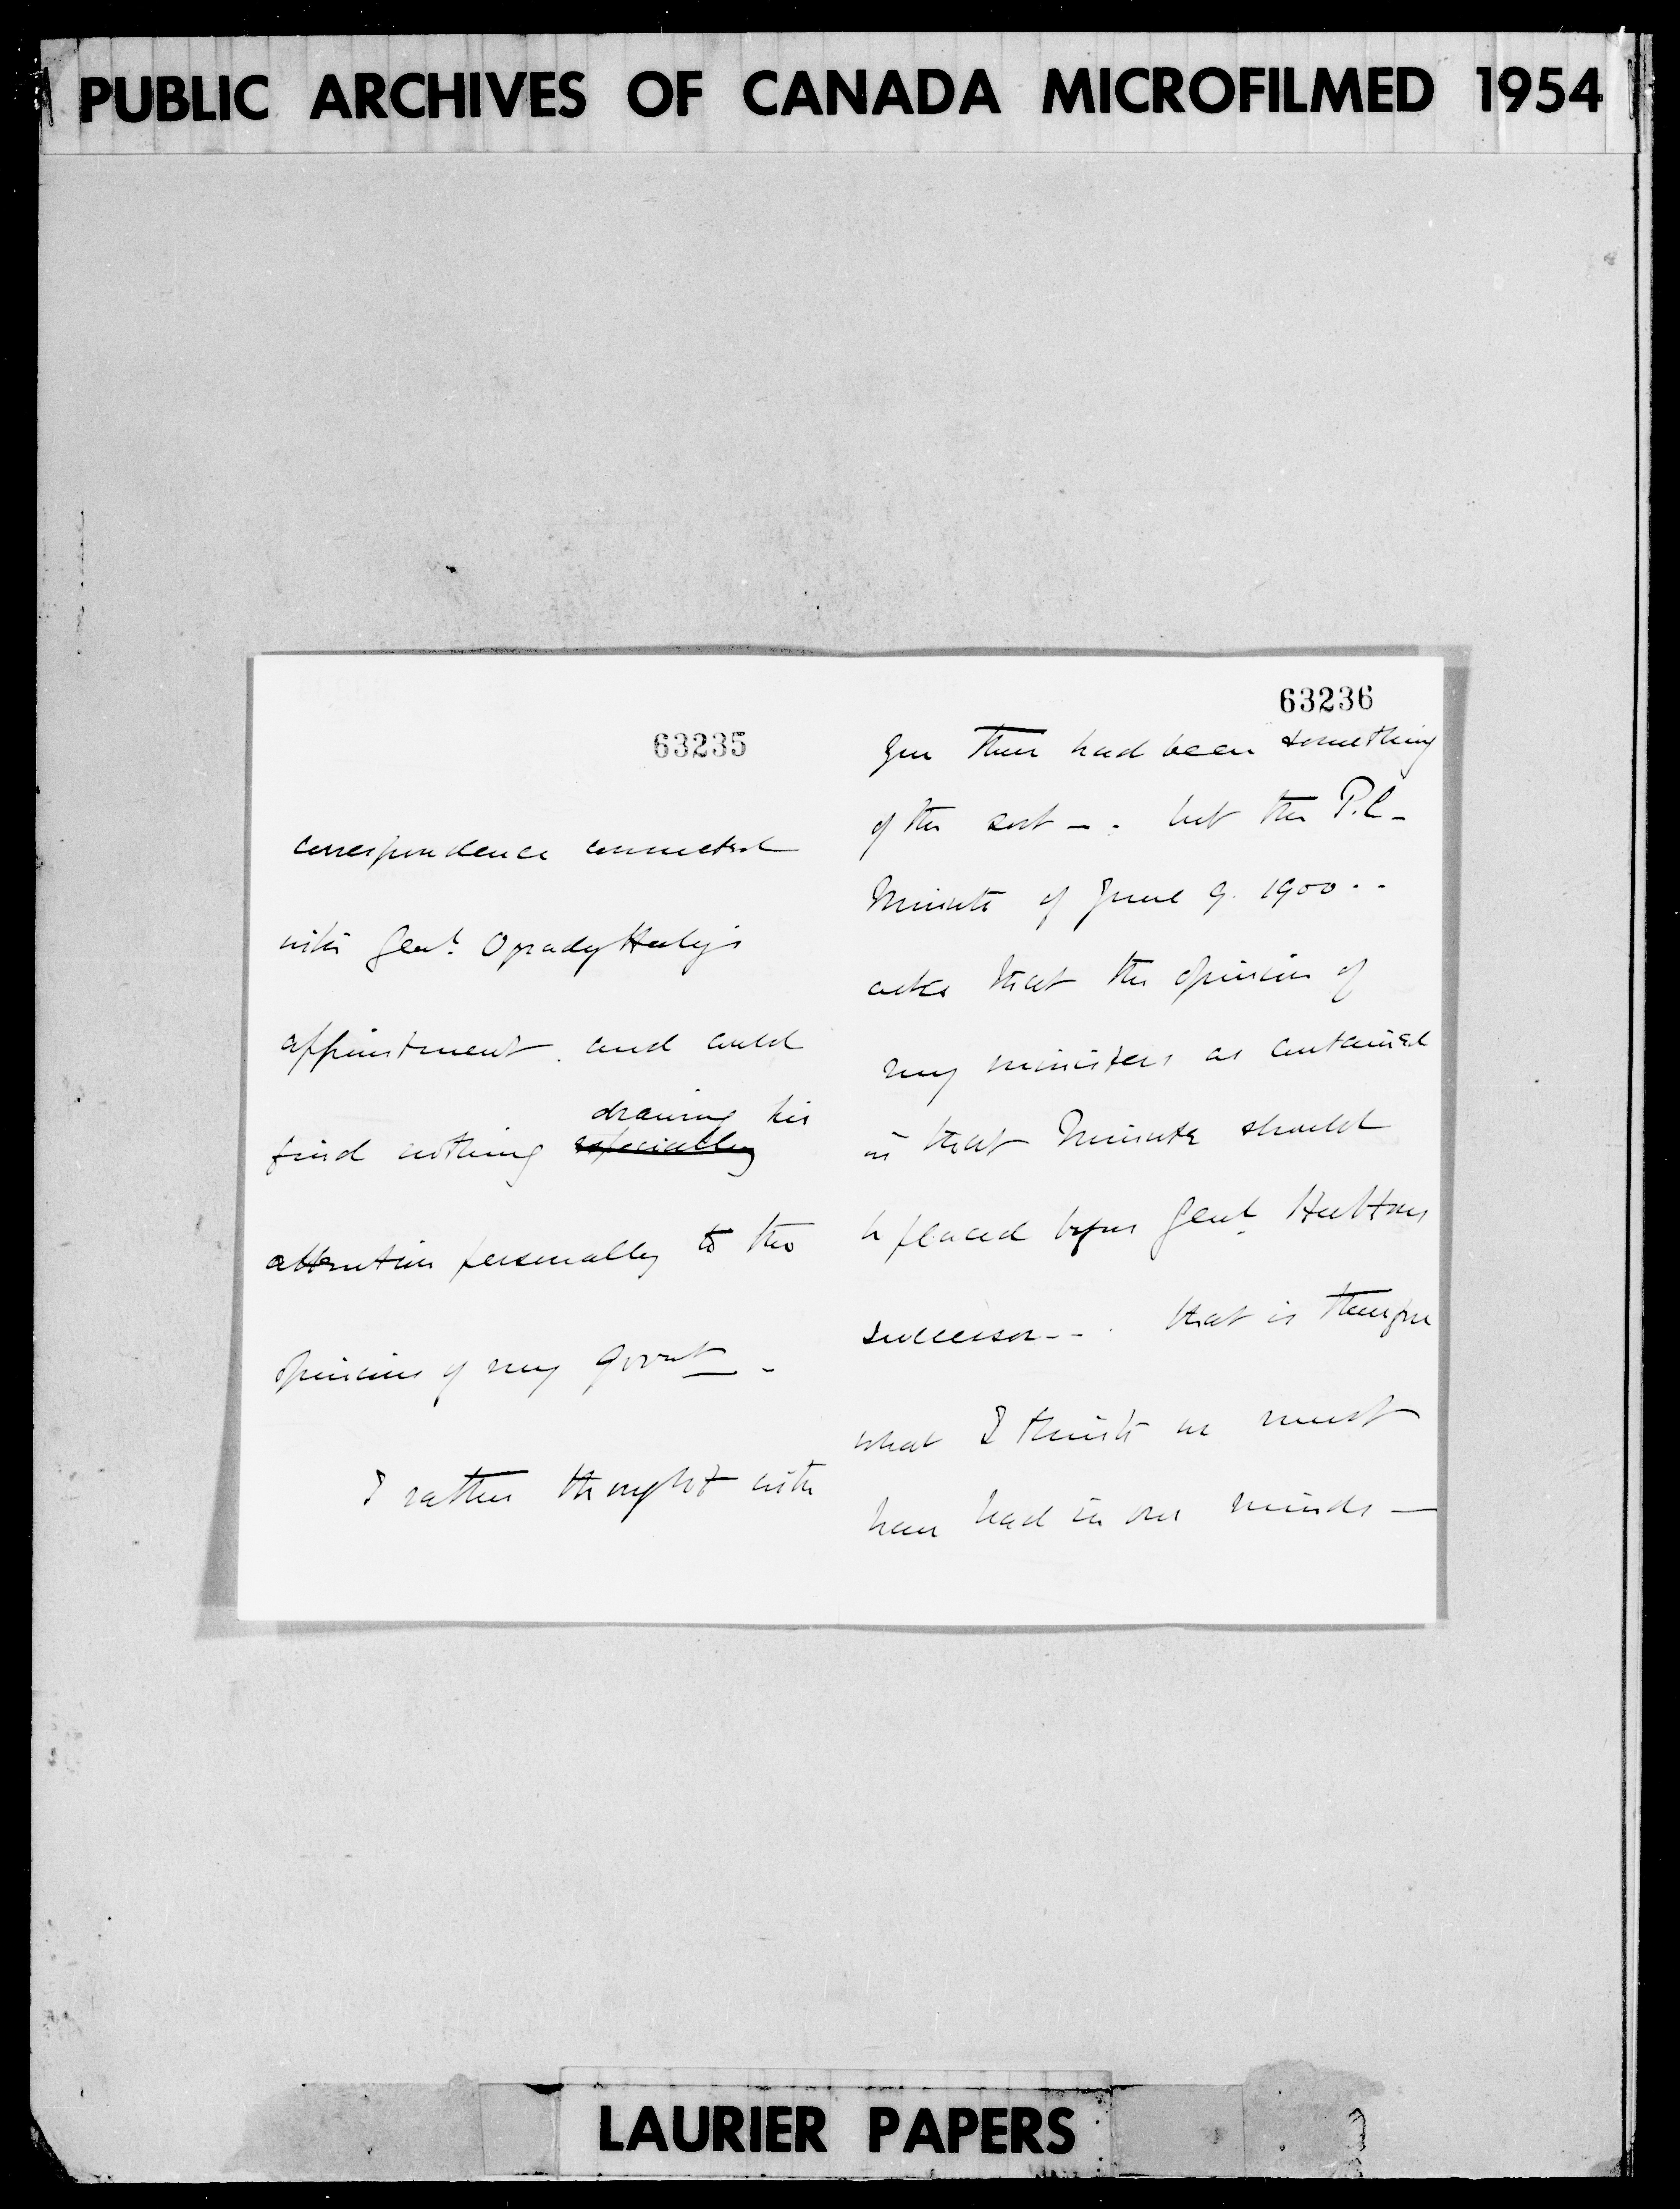 PUBLIC ARCHIVES OF CANADA MICROFILMED 1954
63235
correspondence connected
with Genl. OGrady Haly's
appointment. and could
drawing his
find nothing especially
attention personally to the
opinions of my Govnt -
I rather thought with
63236
you there had been something
of the sort - . but the P.C -
Minute of June 9. 1900 . .
asks that the opinion of
my ministers as contained
in that Minute should
be placed before Genl. Huttons
successor - - . that is therefore
what I think we must
have had in our minds —
LAURIER PAPERS